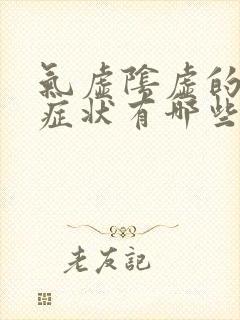 氣虛陰虛的
症状有哪些
老友記